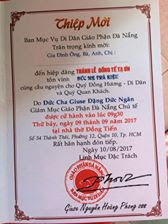 Thiệp Mời
Ban Mục Vụ Di Dân Giáo Phận Đà Nẵng
Trân trọng kính mời:
Gia Đình Ông, Bà, Anh, Chị:
đến hiệp dâng THÁNH LỄ ĐỒNG TẾ TẠ ƠN
tôn vinh ĐỨC MẸ TRÀ KIỆU
cùng cầu nguyện cho Quý Đồng Hương - Di Dân
và Quý Quan Khách.
Do Đức Cha Giuse Đặng Đức Ngân
Giám Mục Giáo Phận Đà Nẵng Chủ tế
được cử hành vào lúc 09g30
Thứ bảy, ngày 09 tháng 09 năm 2017
tại nhà thờ Đồng Tiến
Số 54 Thành Thái, Phường 12, Quận 10, Tp. HCM
Rất hân hạnh đón tiếp.
Ngày 10/08/2017
Linh Mục Đặc Trách
Giuse Nguyễn Hoàng Phong